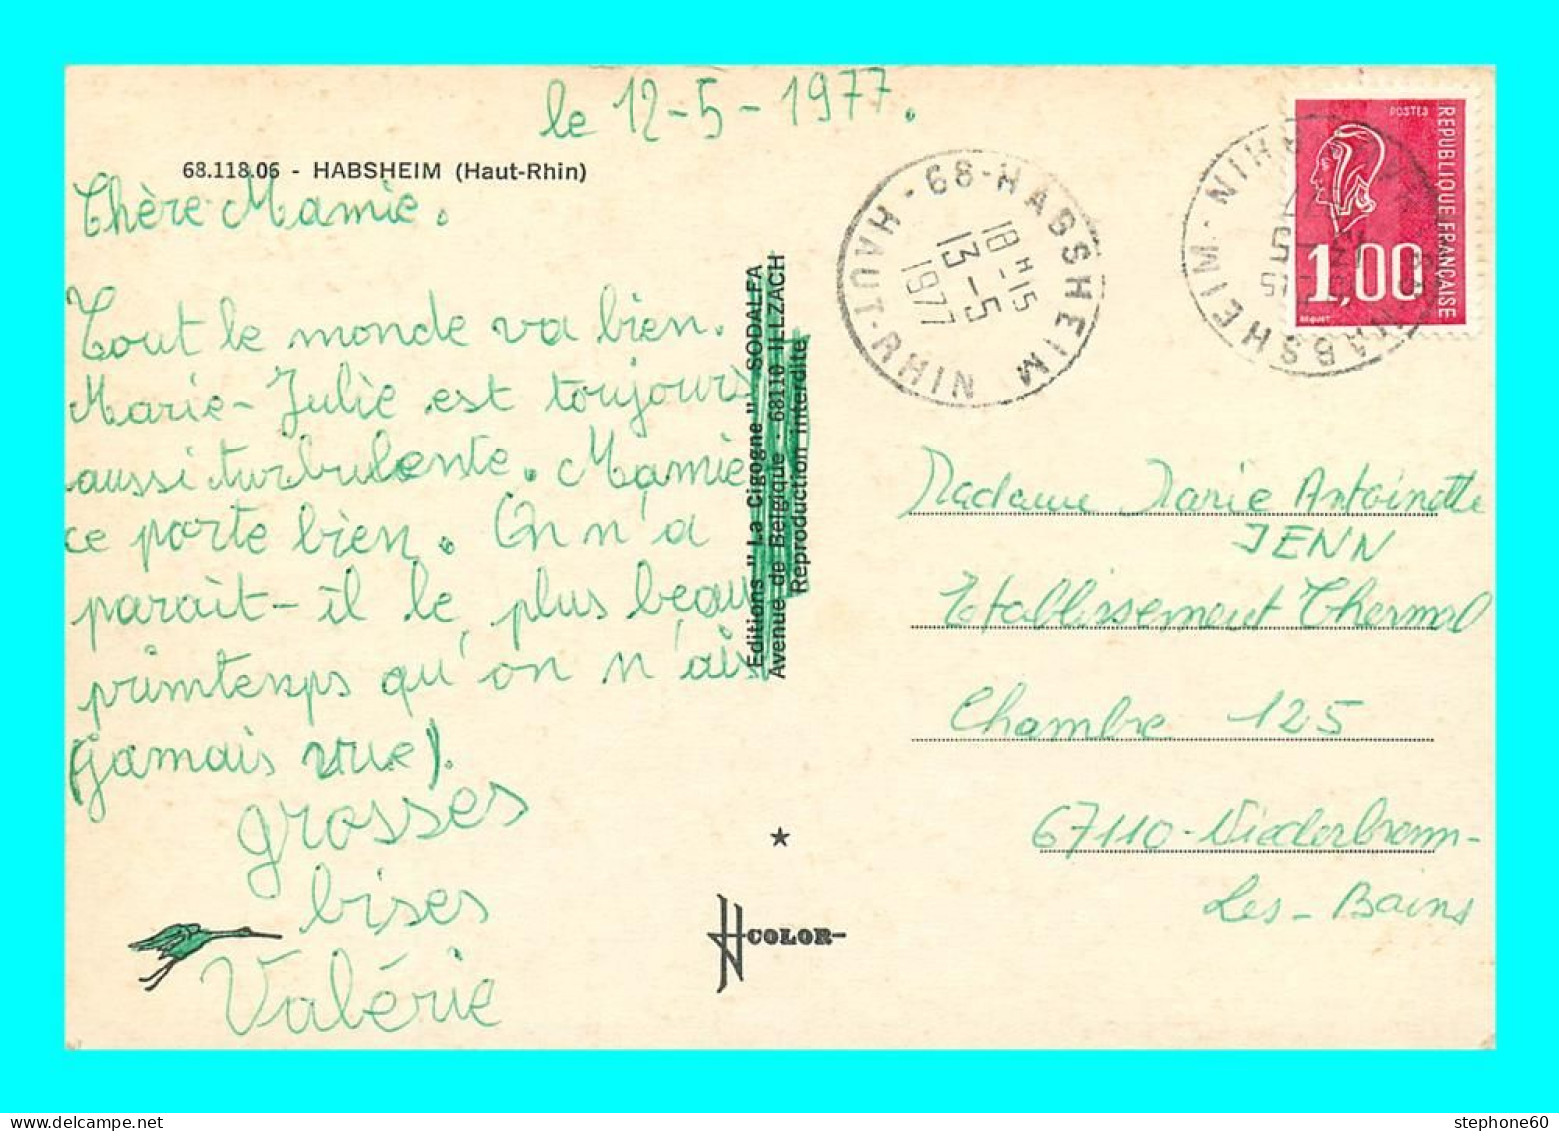 le 12-5-1977.
68.118.06 - HABSHEIM (Haut-Rhin)
Chère Mamie.
Tout le monde va bien.
Marie-Julie est toujours
aussi turbulente. Mamie
ce porte bien. On n'a
parait-il le plus beau
printemps qu'on n'ais
(jamais vue).
grosses
bises
Valérie
Editions "La Cigogne" SODALFA
Avenue de Belgique - 68110 ILLZACH
Reproduction interdite
COLOR-
68-HABSHEIM
HAUT-RHIN
18H15
13-5
1977
POSTES
REPUBLIQUE FRANÇAISE
1,00
BEQUET
HABSHEIM
Madame Marie Antoinette
JENN
Etablissement Thermal
Chambre 125
67110-Niederbronn-
Les-Bains
stephone60